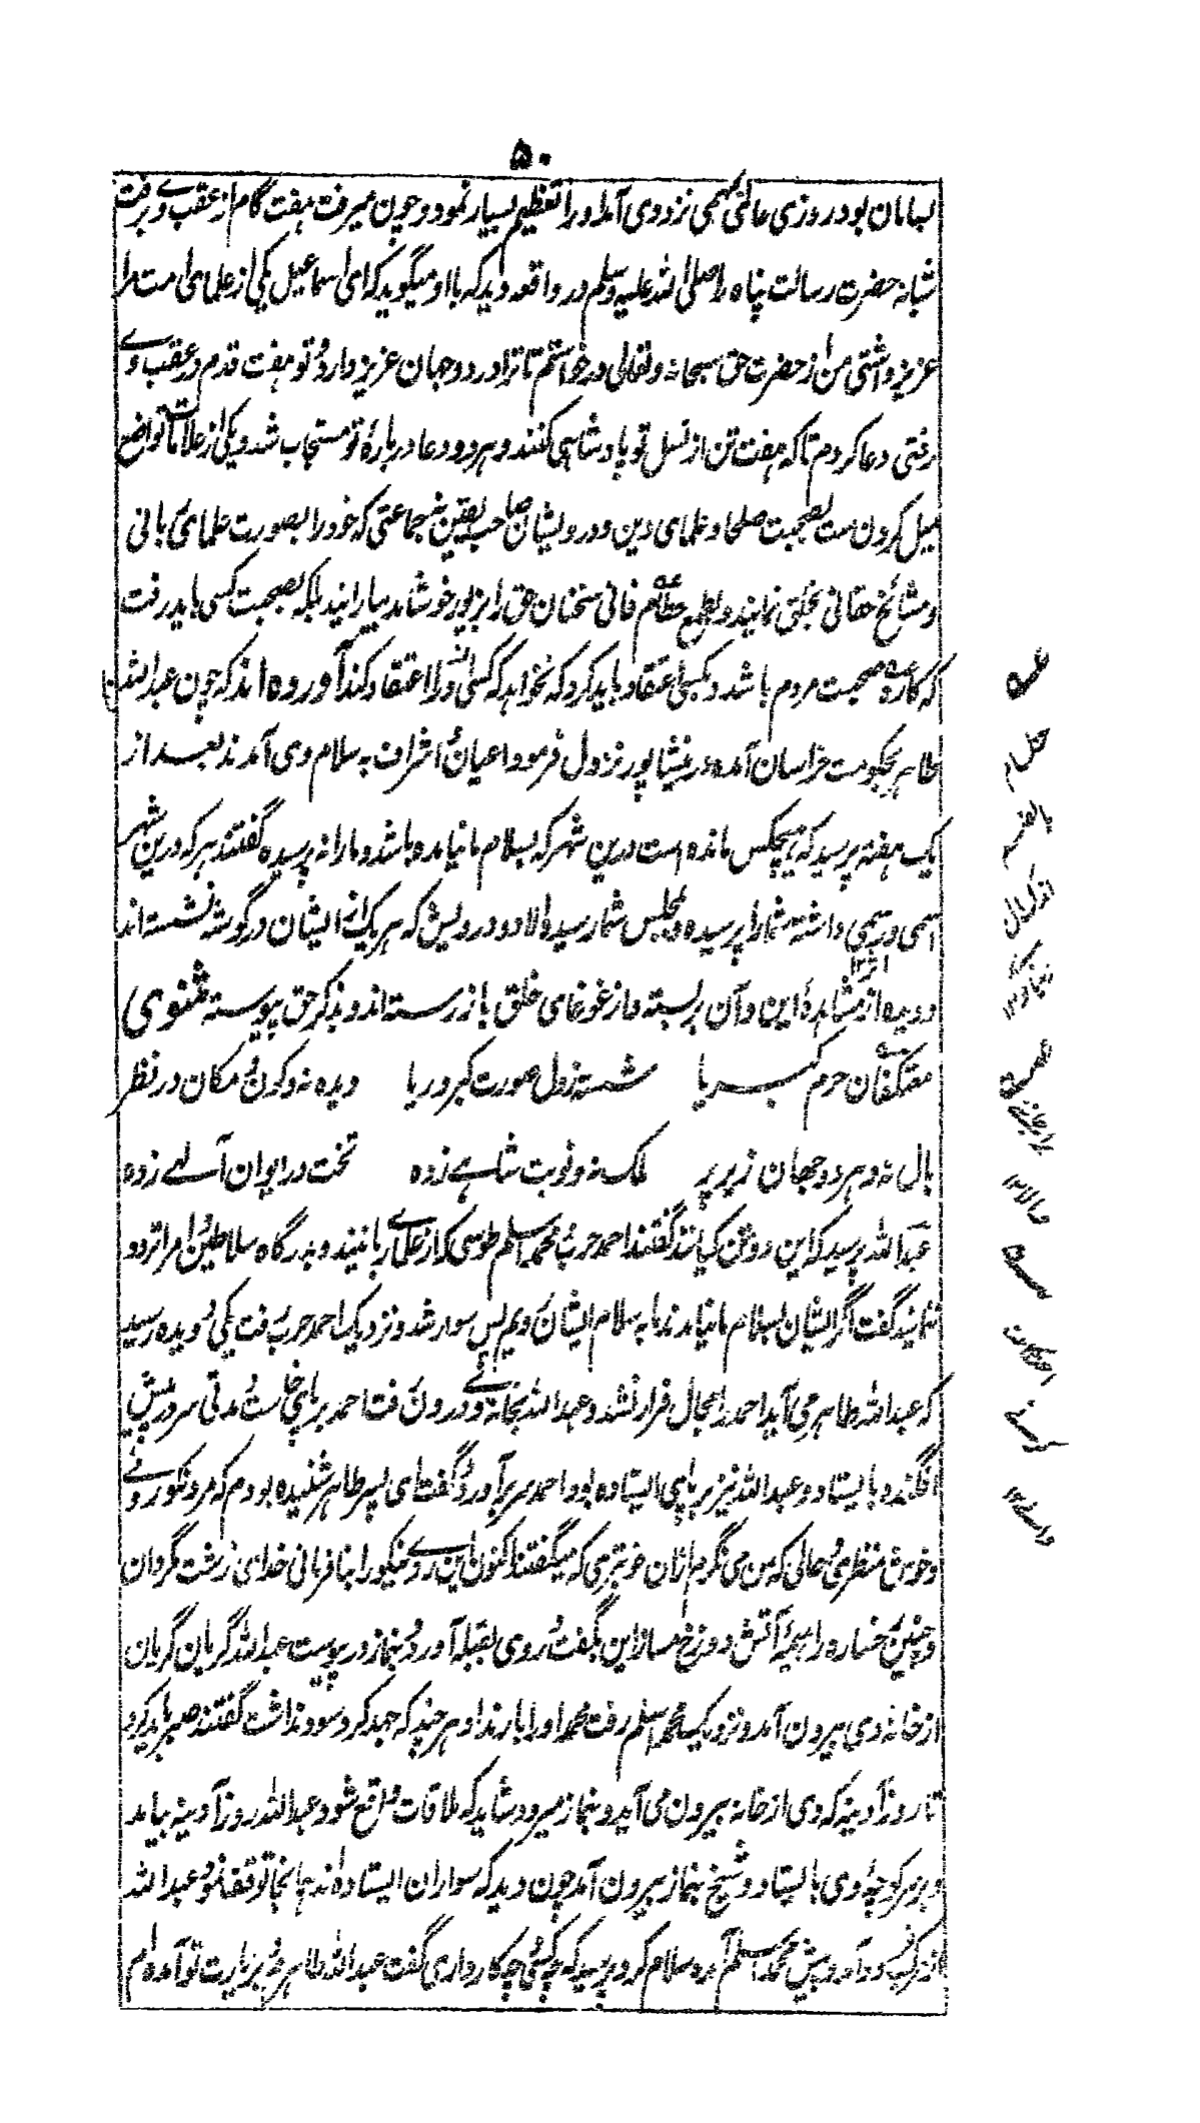 ۵۰
سامان بود روزی عالمی نزد وی آمد او را تعظیم بسیار نمود و چون میرفت هفت گام از عقب وے برفت
شبانه حضرت رسالت پناه را صلی الله علیه وسلم در واقعه دید که با او میگوید که ای اسماعیل یکی از علمای امت مرا
عزیز داشتی من از حضرت حق سبحانه و تعالی درخواستم تا ترا در دو جهان عزیز دارد و تو هفت قدم در عقب وے
رفتی دعا کردم تا که هفت تن از نسل تو پادشاهی کنند و هر دو دعا درباره تو مستجاب شد و یکی از علامات تواضع
میل کردن ست بصحبت صلحا و علمای دین و درویشان صاحب یقین نه جماعتی که خود را بصورت علمای ربانی
و مشائخ حقانی بخلق نمایند و بطمع حطام فانی سخنان حق را بزیور خوشامد بیارایند بلکه بصحبت کسی باید رفت
که کاره صحبت مردم باشد و بکسی اعتقاد باید کرد که نخواهد که کسی او را اعتقاد کند آورده اند که چون عبدالله بن
طاهر بحکومت خراسان آمد و در نیشاپور نزول فرمود اعیان و اشراف به سلام وی آمدند بعد از
یک هفته پرسید که هیچکس مانده است درین شهر که بسلام ما نیامده باشد و ما را نه پرسیده گفتند هر که درین شهر
اسمی و رسمی داشته شما را پرسیده و بمجلس شما رسیده الا دو درویش که هر یک از ایشان در گوشه نشسته اند
و دیده از مشاهده این و آن بر بسته و از غوغای خلق باز رسته اند و بذکر حق پیوسته مثنوی
معتکفان حرم کبریا شسته ز دل صورت کبر و ریا دیده نه و کون و مکان در نظر
بال نه و هر دو جهان زیر پر ملک نه و نوبت شاهے زده تخت در ایوان آلهے زده
عبدالله پرسید که این دو تن کیانند گفتند احمد حرب و محمد اسلم طوسی که از علمای ربانیند و بدرگاه سلاطین و امرا تردد
ننمایند گفت اگر ایشان بسلام ما نیامدند ما به سلام ایشان رویم پس سوار شد و نزدیک احمد حرب رفت یکی دویده رسید
که عبدالله طاهر می آید احمد را مجال فرار نشد و عبدالله بخانه وے درون رفت احمد بر پای خاست و مدتی سر در پیش
افگنده بایستاد و عبدالله نیز بر پای ایستاده بود احمد سر بر آورد و گفت ای پسر طاهر شنیده بودم که مرد نکو روئے
و خوش منظری و حالی که من می نگرم ازان خوبتری که میگفتند اکنون این روے نیکو را بنافرمانی خدای زشت مگردان
و چنین رخساره را هیمه آتش دوزخ مساز این بگفت و روی بقبله آورد و بنماز در پیوست عبدالله گریان گریان
از خانه وی بیرون آمد و نزدیک محمد اسلم رفت محمد او را بار نداد هر چند که جهد کرد سود نداشت گفتند صبر باید کرد
تا روز آدینه که وی از خانه بیرون می آید و بنماز میرود شاید که ملاقات واقع شود عبدالله روز آدینه بیامد
و بر سر کوچه وی بایستاد و شیخ بنماز بیرون آمد چون دید که سواران ایستاده اند همانجا توقف نمود عبدالله
از مرکب فرود آمد و پیش محمد اسلم آمد و سلام کرد و پرسید که چه کسی و چه کار داری گفت عبدالله طاهرم و بزیارت تو آمده ام